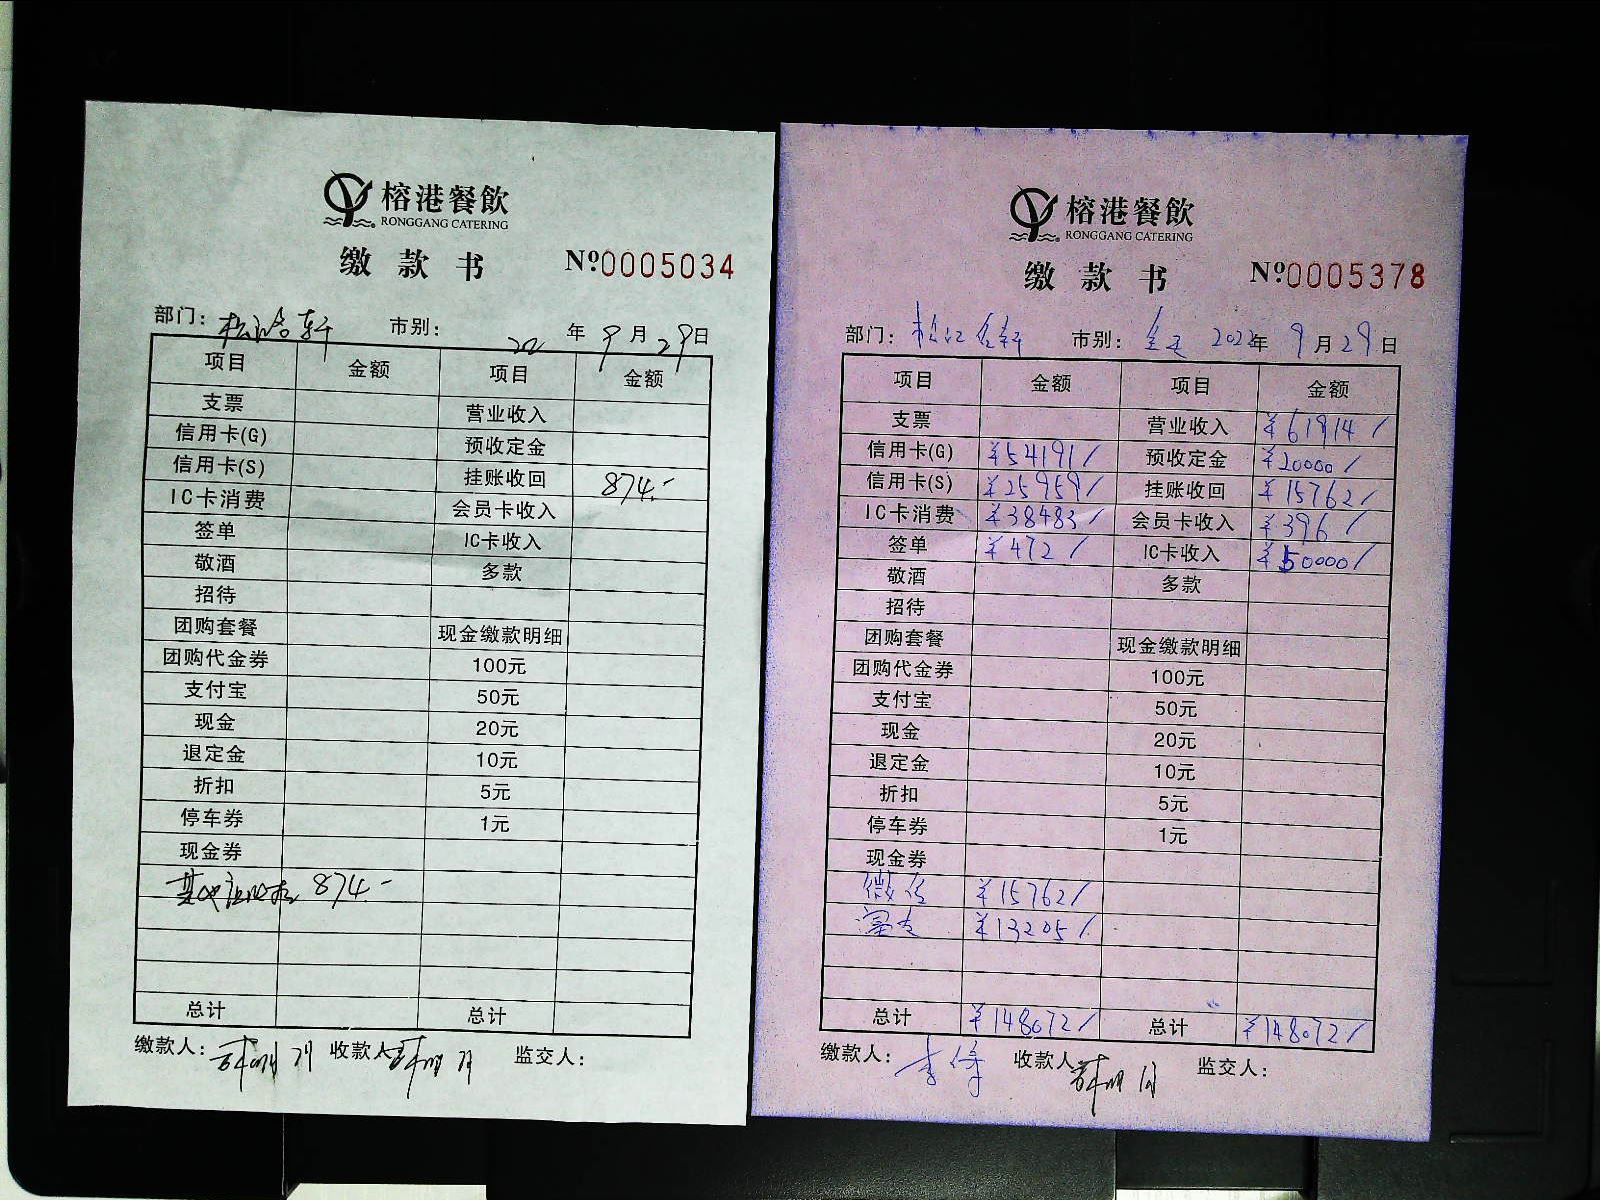 榕港餐飲
RONGGANG CATERING
缴款书 Nº0005034
部门： 市别： 22 年 9 月 29 日
项目 金额 项目 金额
支票 营业收入
信用卡(G) 预收定金
信用卡(S) 挂账收回 874.-
IC卡消费 会员卡收入
签单 IC卡收入
敬酒 多款
招待
团购套餐 现金缴款明细
团购代金券 100元
支付宝 50元
现金 20元
退定金 10元
折扣 5元
停车券 1元
现金券
874.-
总计 总计
缴款人： 收款人 监交人：
榕港餐飲
RONGGANG CATERING
缴款书 Nº0005378
部门： 市别： 2022年 9 月 29 日
项目 金额 项目 金额
支票 营业收入 ¥61914/
信用卡(G) ¥54191/ 预收定金 ¥20000/
信用卡(S) ¥25959/ 挂账收回 ¥15762/
IC卡消费 ¥38483/ 会员卡收入 ¥396/
签单 ¥472/ IC卡收入 ¥50000/
敬酒 多款
招待
团购套餐 现金缴款明细
团购代金券 100元
支付宝 50元
现金 20元
退定金 10元
折扣 5元
停车券 1元
现金券
微信 ¥15762/
¥13205/
总计 ¥148072/ 总计 ¥148072/
缴款人： 收款人 监交人：